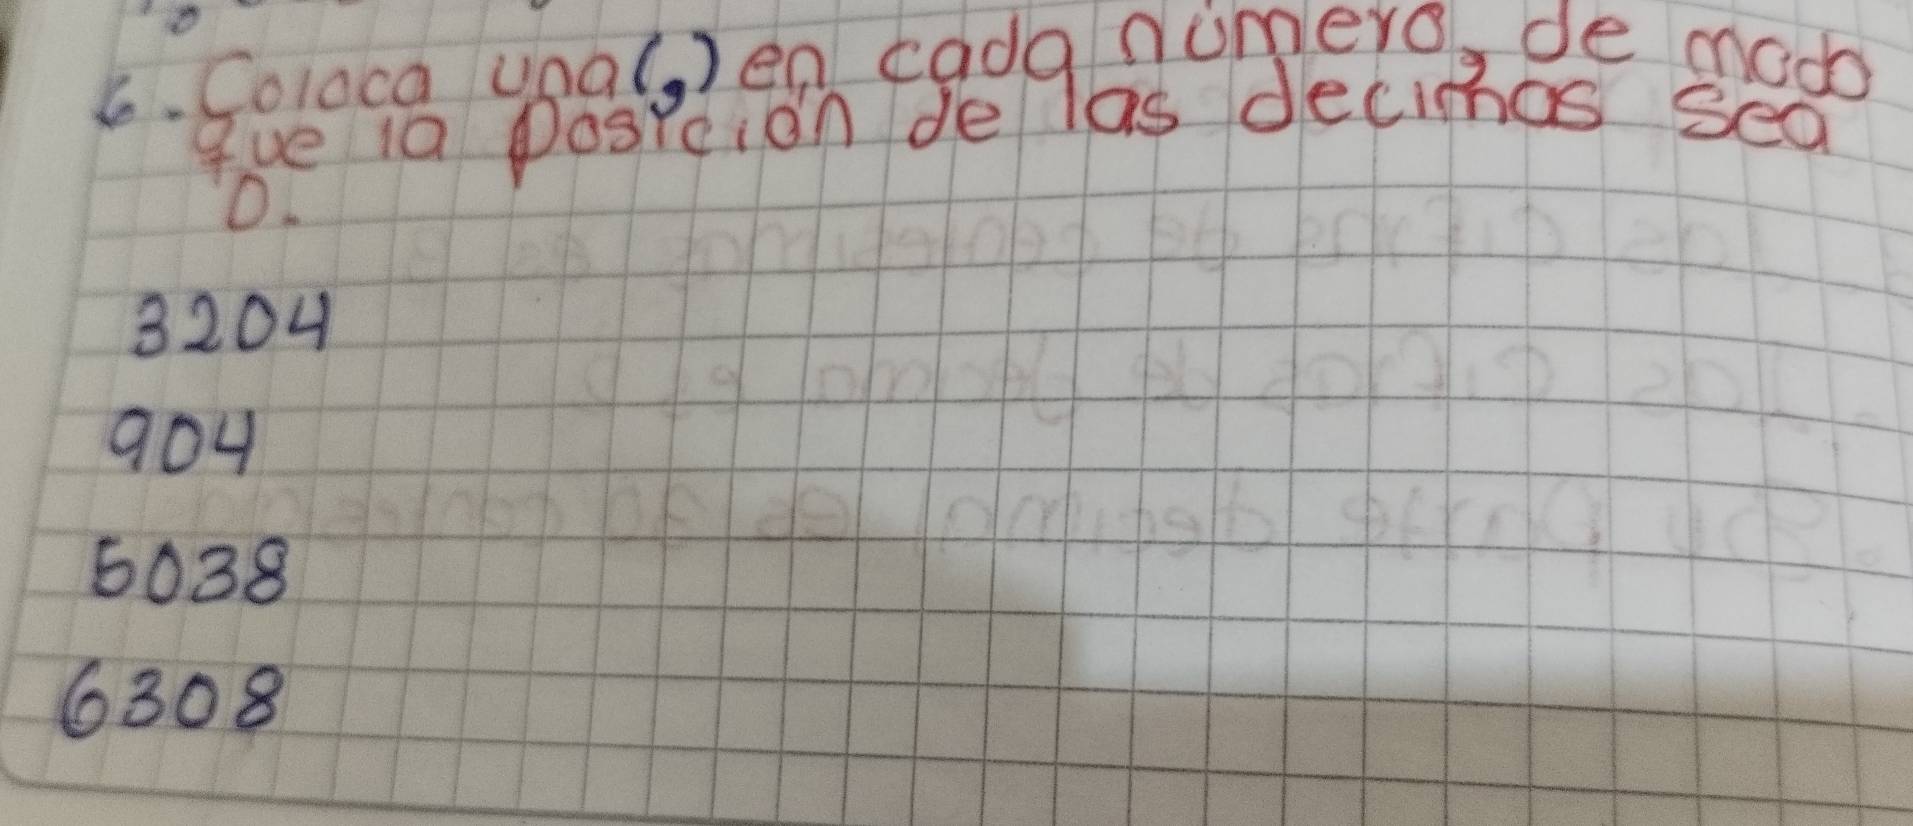 6. Coloca una (,) en cada número, de modo
que la posición de las decimas sea
0.
3204
904
5038
6308